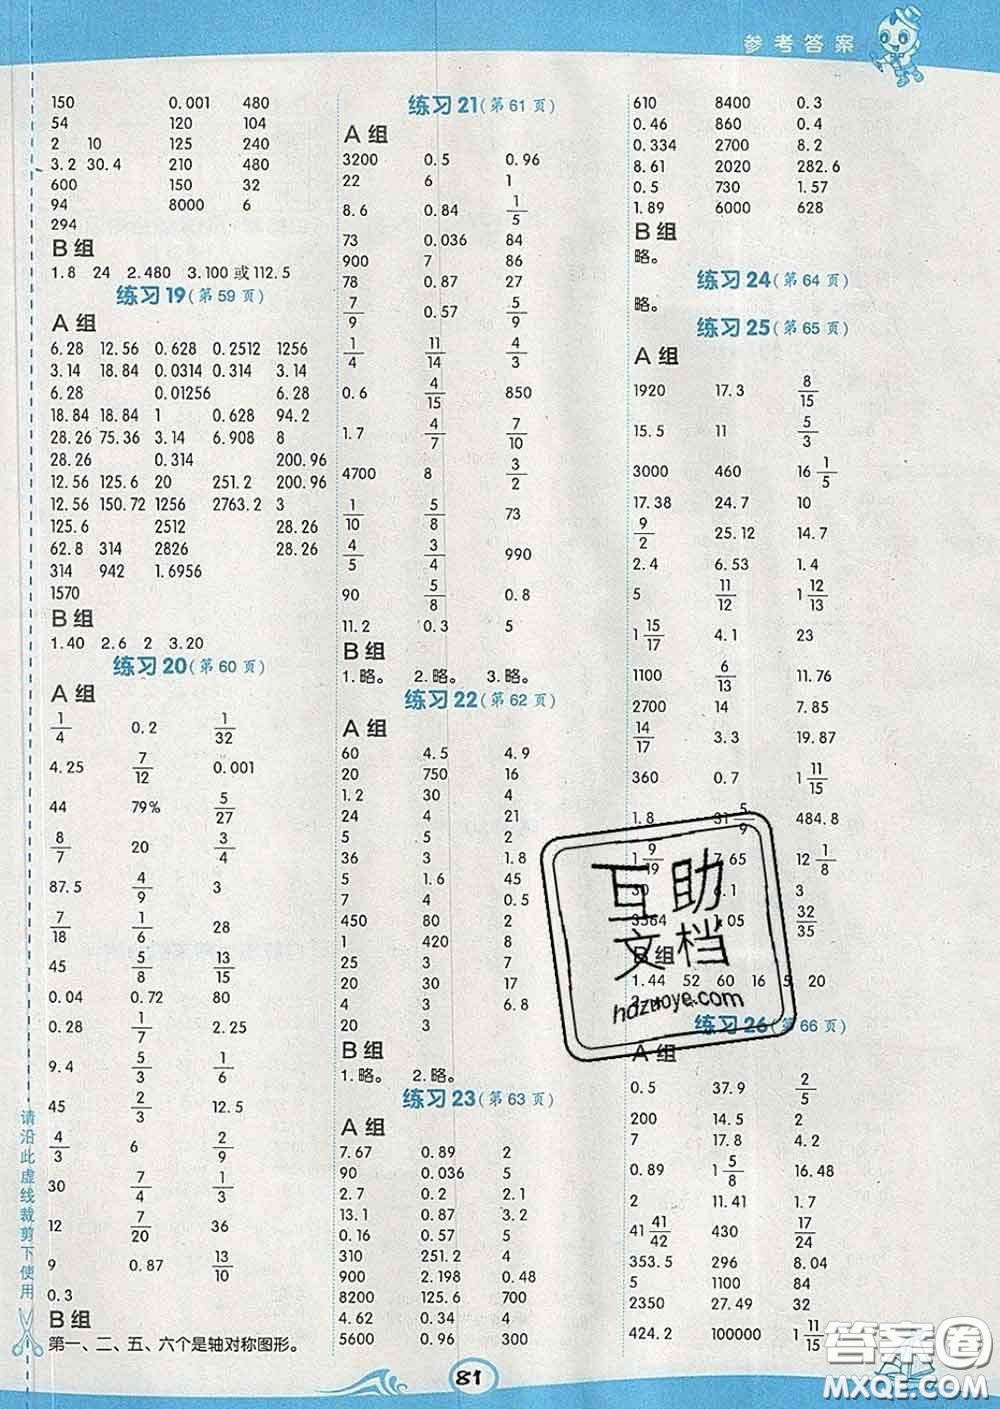 参考答案
150 0.001 480
54 120 104
2 10 125 240
3.2 30.4 210 480
600 150 32
94 8000 6
294
B组
1.8 24 2.480 3.100或112.5
练习19(第59页)
A组
6.28 12.56 0.628 0.2512 1256
3.14 18.84 0.0314 0.314 3.14
6.28 0.01256 62.8
18.84 18.84 1 0.628 94.2
28.26 75.36 3.14 6.908 8
28.26 0.314 200.96
12.56 125.6 20 251.2 200.96
12.56 150.72 1256 2763.2 3
125.6 2512 28.26
62.8 314 2826 28.26
314 942 1.6956
1570
B组
1.40 2.6 2 3.20
练习20(第60页)
A组
1/4 0.2 1/32
4.25 7/12 0.001
44 79% 5/27
8/7 20 3/4
87.5 4/9 3
7/18 1/6 28
45 5/8 13/15
0.04 0.72 80
0.28 1/7 2.25
9.4 5/3 1/6
45 2/3 12.5
4/3 6 2/9
30 7/4 1/3
12 7/20 36
9 0.87 13/10
0.3
B组
第一、二、五、六个是轴对称图形。
练习21(第61页)
A组
3200 0.5 0.96
22 6 1
8.6 0.84 1/5
73 0.036 84
900 7 86
78 0.87 27
7/9 0.57 5/9
1/4 11/14 4/3
0.6 4/15 850
1.7 4/7 7/10
4700 8 3/2
1/10 5/8 73
4/5 3/4 990
90 5/8 0.8
11.2 0.3 5
B组
1.略。 2.略。 3.略。
练习22(第62页)
A组
60 4.5 4.9
20 750 16
1.2 30 4
24 4 21
5 5 2
36 3 1.8
5 1.6 45
7 4 0.5
450 80 2
1 420 8
22.5 3 6
20 30 17
3 4 6.8
20 3
B组
1.略。 2.略。
练习23(第63页)
A组
7.67 0.89 2
90 0.036 5
2.7 0.2 2.1
13.1 0.87 3.2
0.16 0.57 5
310 251.2 4
900 2.198 0.48
8200 125.6 700
4.62 0.34 4
5600 0.96 300
610 8400 0.3
0.46 860 0.4
0.334 2700 8.2
8.61 2020 282.6
0.5 730 1.57
1.89 6000 628
B组
略。
练习24(第64页)
略。
练习25(第65页)
A组
1920 17.3 8/15
15.5 11 5/3
3000 460 16 1/5
17.38 24.7 10
9/2 25.12 14.7
2.4 6.53 1.4
5 11/12 1 12/13
1 15/17 4.1 23
1100 6/13 11.76
2700 14 7.85
14/17 3.3 19.87
360 0.7 1 11/15
1.8 31 5/9 484.8
7.65 12 1/8
3
32/35
B组
1.44 52 60 16 5 20
练习26(第66页)
A组
0.5 37.9 2/5
200 14.5 2
7 17.8 4.2
0.89 1 5/8 16.48
2 11.41 1.7
41 41/42 430 17/24
353.5 296 8.04
5 1100 84
2350 27.49 32
424.2 100000 1 11/15
请沿此虚线裁剪下使用
81
互助文档
hdzuoye.com
答案圈
MXQE.COM